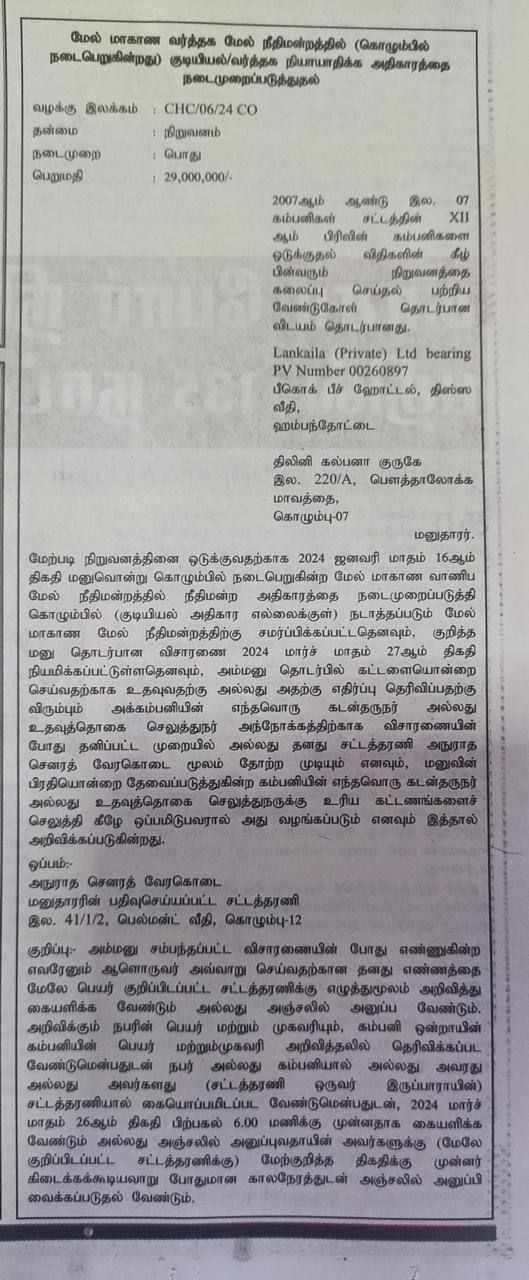 மேல் மாகாண வர்த்தக மேல் நீதிமன்றத்தில் (கொழும்பில்
நடைபெறுகின்றது) குடியியல்/வர்த்தக நியாயாதிக்க அதிகாரத்தை
நடைமுறைப்படுத்துதல்
வழக்கு இலக்கம் : CHC/06/24 CO
தன்மை : நிறுவனம்
நடைமுறை : பொது
பெறுமதி : 29,000,000/-
2007ஆம் ஆண்டு இல. 07
கம்பனிகள் சட்டத்தின் XII
ஆம் பிரிவின் கம்பனிகளை
ஒடுக்குதல் விதிகளின் கீழ்
பின்வரும் நிறுவனத்தை
கலைப்பு செய்தல் பற்றிய
வேண்டுகோள் தொடர்பான
விடயம் தொடர்பானது.
Lankaila (Private) Ltd bearing
PV Number 00260897
பீகொக் பீச் ஹோட்டல், திஸ்ஸ
வீதி,
ஹம்பந்தோட்டை
திலினி கல்பனா குருகே
இல. 220/A, பௌத்தாலோக்க
மாவத்தை,
கொழும்பு-07
மனுதாரர்.
மேற்படி நிறுவனத்தினை ஒடுக்குவதற்காக 2024 ஜனவரி மாதம் 16ஆம்
திகதி மனுவொன்று கொழும்பில் நடைபெறுகின்ற மேல் மாகாண வாணிப
மேல் நீதிமன்றத்தில் நீதிமன்ற அதிகாரத்தை நடைமுறைப்படுத்தி
கொழும்பில் (குடியியல் அதிகார எல்லைக்குள்) நடாத்தப்படும் மேல்
மாகாண மேல் நீதிமன்றத்திற்கு சமர்ப்பிக்கப்பட்டதெனவும், குறித்த
மனு தொடர்பான விசாரணை 2024 மார்ச் மாதம் 27ஆம் திகதி
நியமிக்கப்பட்டுள்ளதெனவும், அம்மனு தொடர்பில் கட்டளையொன்றை
செய்வதற்காக உதவுவதற்கு அல்லது அதற்கு எதிர்ப்பு தெரிவிப்பதற்கு
விரும்பும் அக்கம்பனியின் எந்தவொரு கடன்தருநர் அல்லது
உதவுத்தொகை செலுத்துநர் அந்நோக்கத்திற்காக விசாரணையின்
போது தனிப்பட்ட முறையில் அல்லது தனது சட்டத்தரணி அநுராத
செனரத் வேரகொடை மூலம் தோற்ற முடியும் எனவும், மனுவின்
பிரதியொன்றை தேவைப்படுத்துகின்ற கம்பனியின் எந்தவொரு கடன்தருநர்
அல்லது உதவுத்தொகை செலுத்துநருக்கு உரிய கட்டணங்களைச்
செலுத்தி கீழே ஒப்பமிடுபவரால் அது வழங்கப்படும் எனவும் இத்தால்
அறிவிக்கப்படுகின்றது.
ஒப்பம்:-
அநுராத செனரத் வேரகொடை
மனுதாரரின் பதிவுசெய்யப்பட்ட சட்டத்தரணி
இல. 41/1/2, பெல்மன்ட் வீதி, கொழும்பு-12
குறிப்பு:- அம்மனு சம்பந்தப்பட்ட விசாரணையின் போது எண்ணுகின்ற
எவரேனும் ஆளொருவர் அவ்வாறு செய்வதற்கான தனது எண்ணத்தை
மேலே பெயர் குறிப்பிடப்பட்ட சட்டத்தரணிக்கு எழுத்துமூலம் அறிவித்து
கையளிக்க வேண்டும் அல்லது அஞ்சலில் அனுப்ப வேண்டும்.
அறிவிக்கும் நபரின் பெயர் மற்றும் முகவரியும், கம்பனி ஒன்றாயின்
கம்பனியின் பெயர் மற்றும்முகவரி அறிவித்தலில் தெரிவிக்கப்பட
வேண்டுமென்பதுடன் நபர் அல்லது கம்பனியால் அல்லது அவரது
அல்லது அவர்களது (சட்டத்தரணி ஒருவர் இருப்பாராயின்)
சட்டத்தரணியால் கையொப்பமிடப்பட வேண்டுமென்பதுடன், 2024 மார்ச்
மாதம் 26ஆம் திகதி பிற்பகல் 6.00 மணிக்கு முன்னதாக கையளிக்க
வேண்டும் அல்லது அஞ்சலில் அனுப்புவதாயின் அவர்களுக்கு (மேலே
குறிப்பிடப்பட்ட சட்டத்தரணிக்கு) மேற்குறித்த திகதிக்கு முன்னர்
கிடைக்கக்கூடியவாறு போதுமான காலநேரத்துடன் அஞ்சலில் அனுப்பி
வைக்கப்படுதல் வேண்டும்.